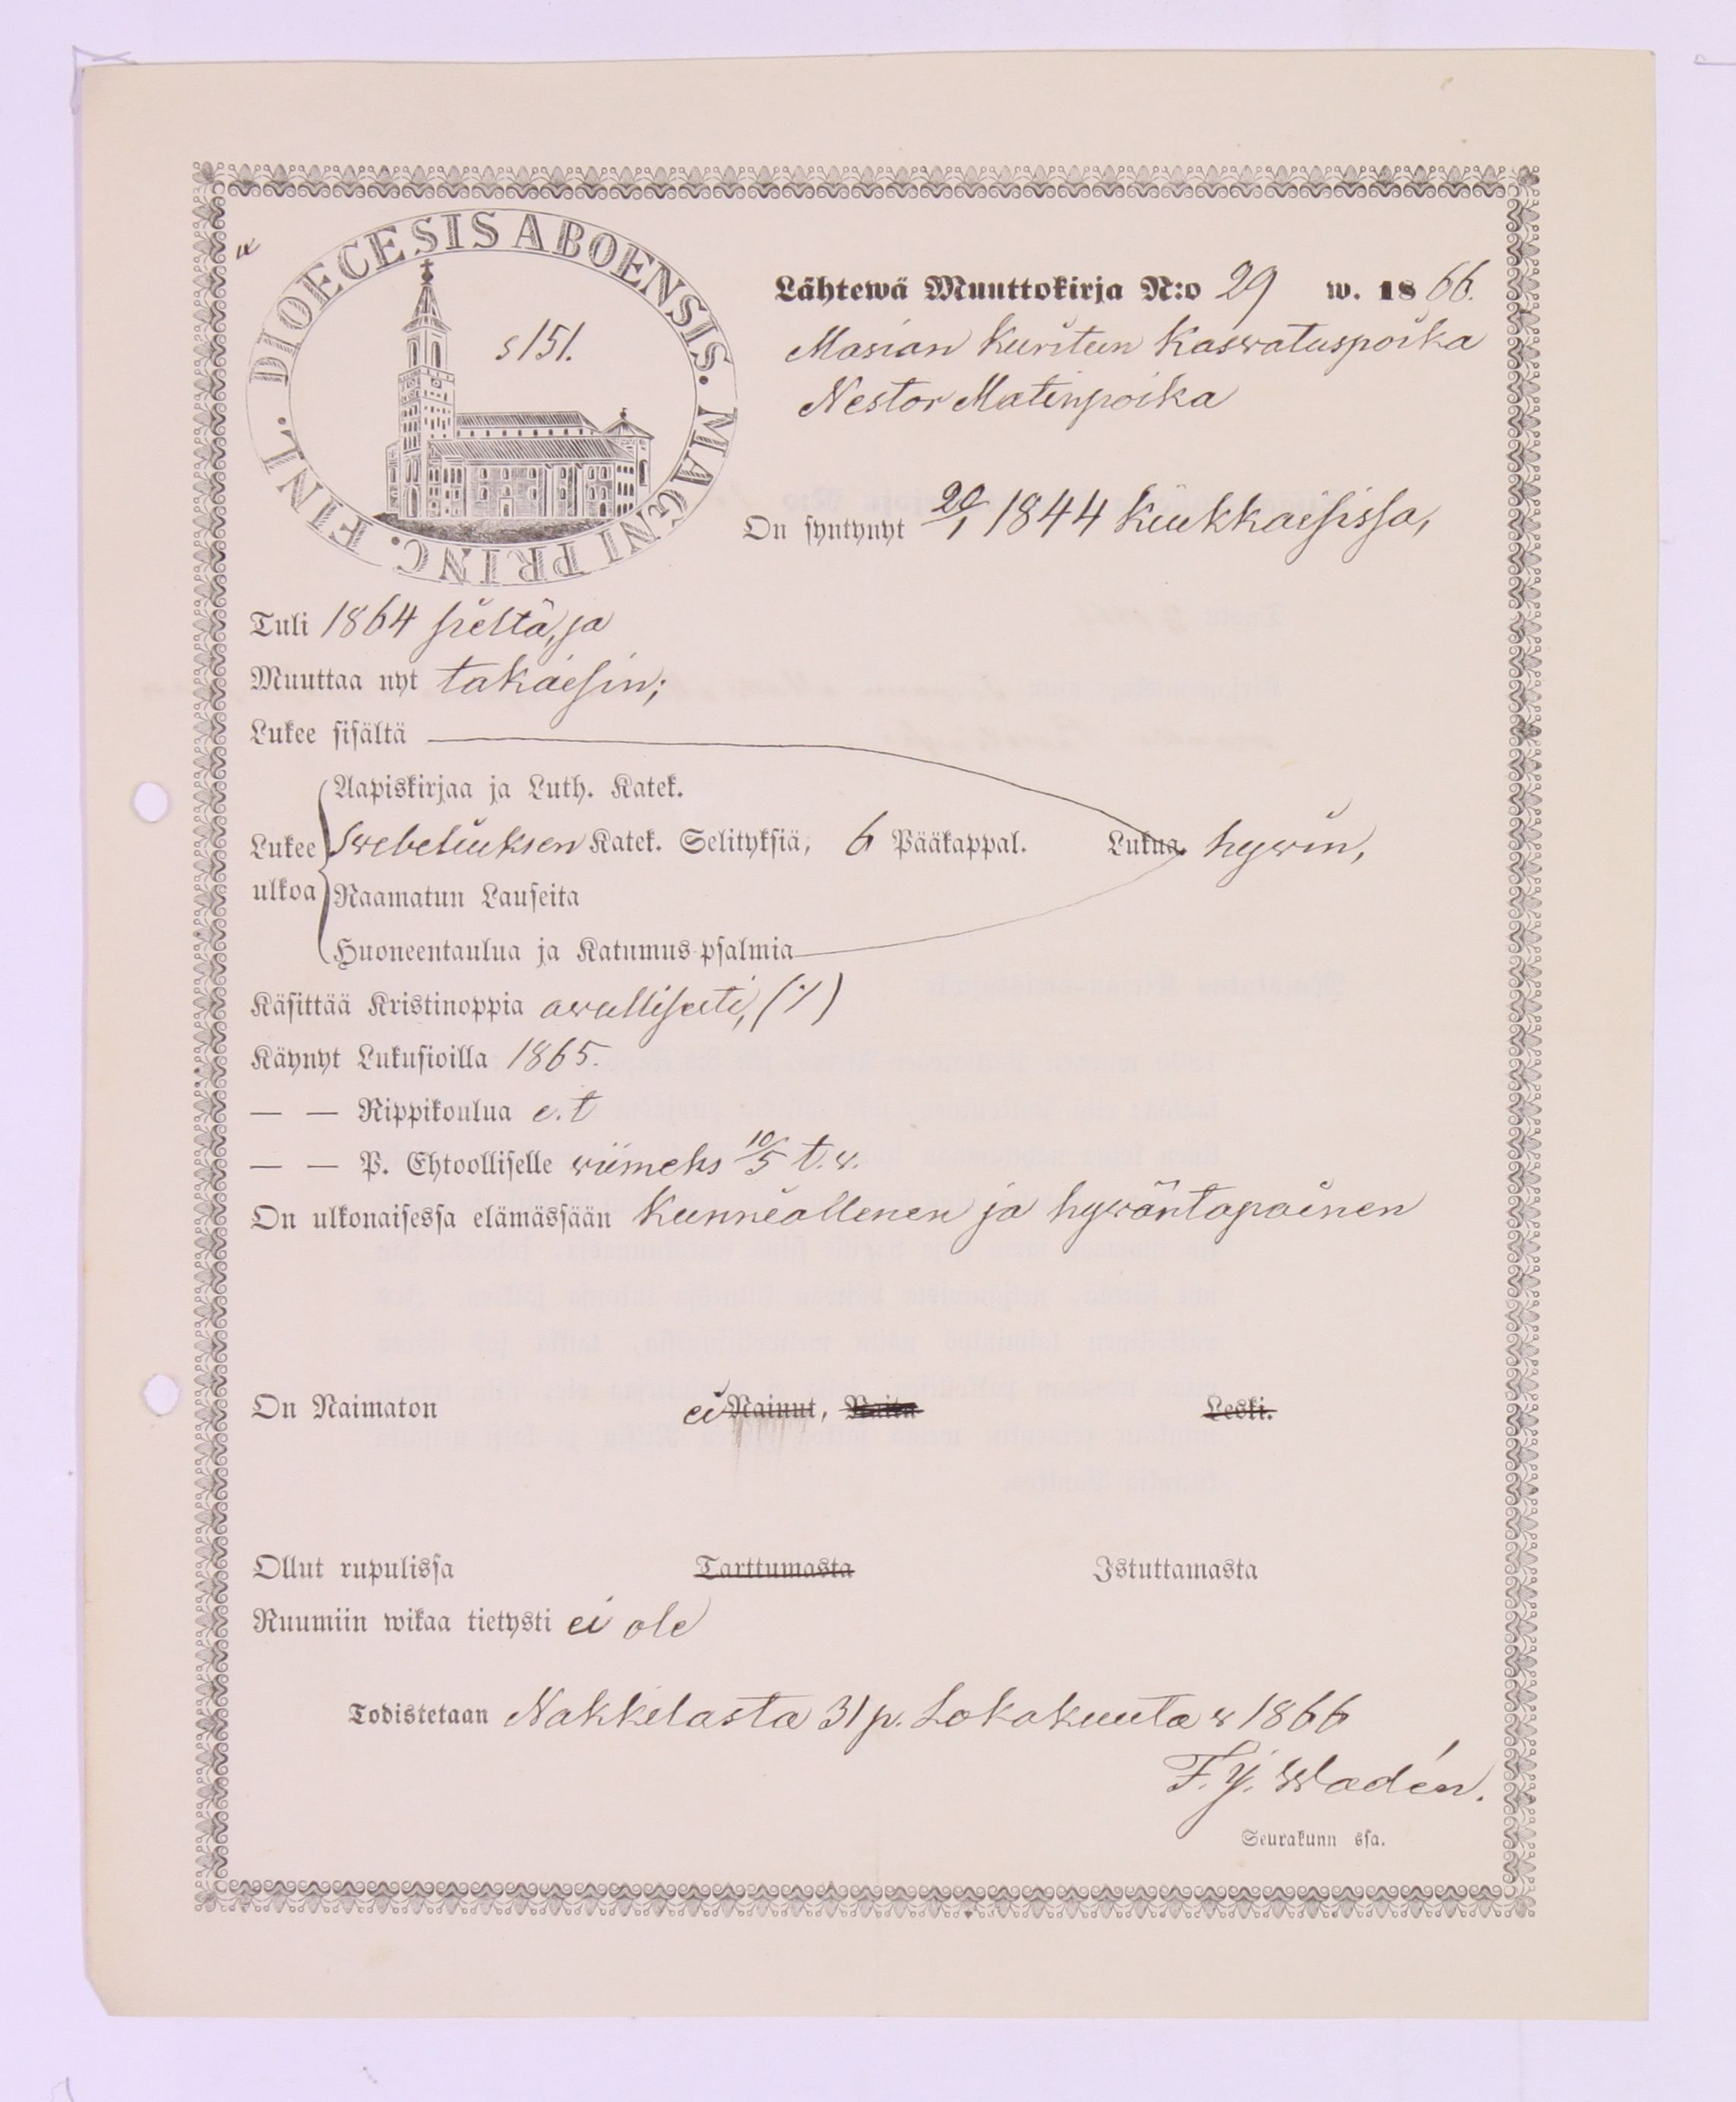 DIOECESIS ABOENSIS. MAGNI PRINC. FINL.
s 151.
Lähtewä Muuttokirja N:o 29 w. 1866.
Masian Kuritun Kaswatuspoika
Nestor Matinpoika
On syntynyt 20/1 1844 Kiukkaisissa,
Tuli 1864 sieltä, ja
Muuttaa nyt takaisin;
Lukee sisältä
Aapiskirjaa ja Luth. Katek.
Lukee ulkoa Swebeliuksen Katek. Selityksiä, 6 Pääkappal. Lukua hywin,
Raamatun Lauseita
Huoneentaulua ja Katumus-psalmia
Käsittää Kristinoppia awullisesti, (./.)
Käynyt Lukusioilla 1865.
— — Rippikoulua e. t
— — P. Ehtoolliselle wiimeks 10/5 t. w.
On ulkonaisessa elämässään kunniallinen ja hywäntapainen
On Naimaton ei Nainut, Naitu Leski.
Ollut rupulissa Tarttumasta Istuttamasta
Ruumiin wikaa tietysti ei ole
Todistetaan Nakkilasta 31 p. Lokakuuta w 1866
F. J. Wadén.
Seurakunn ssa.